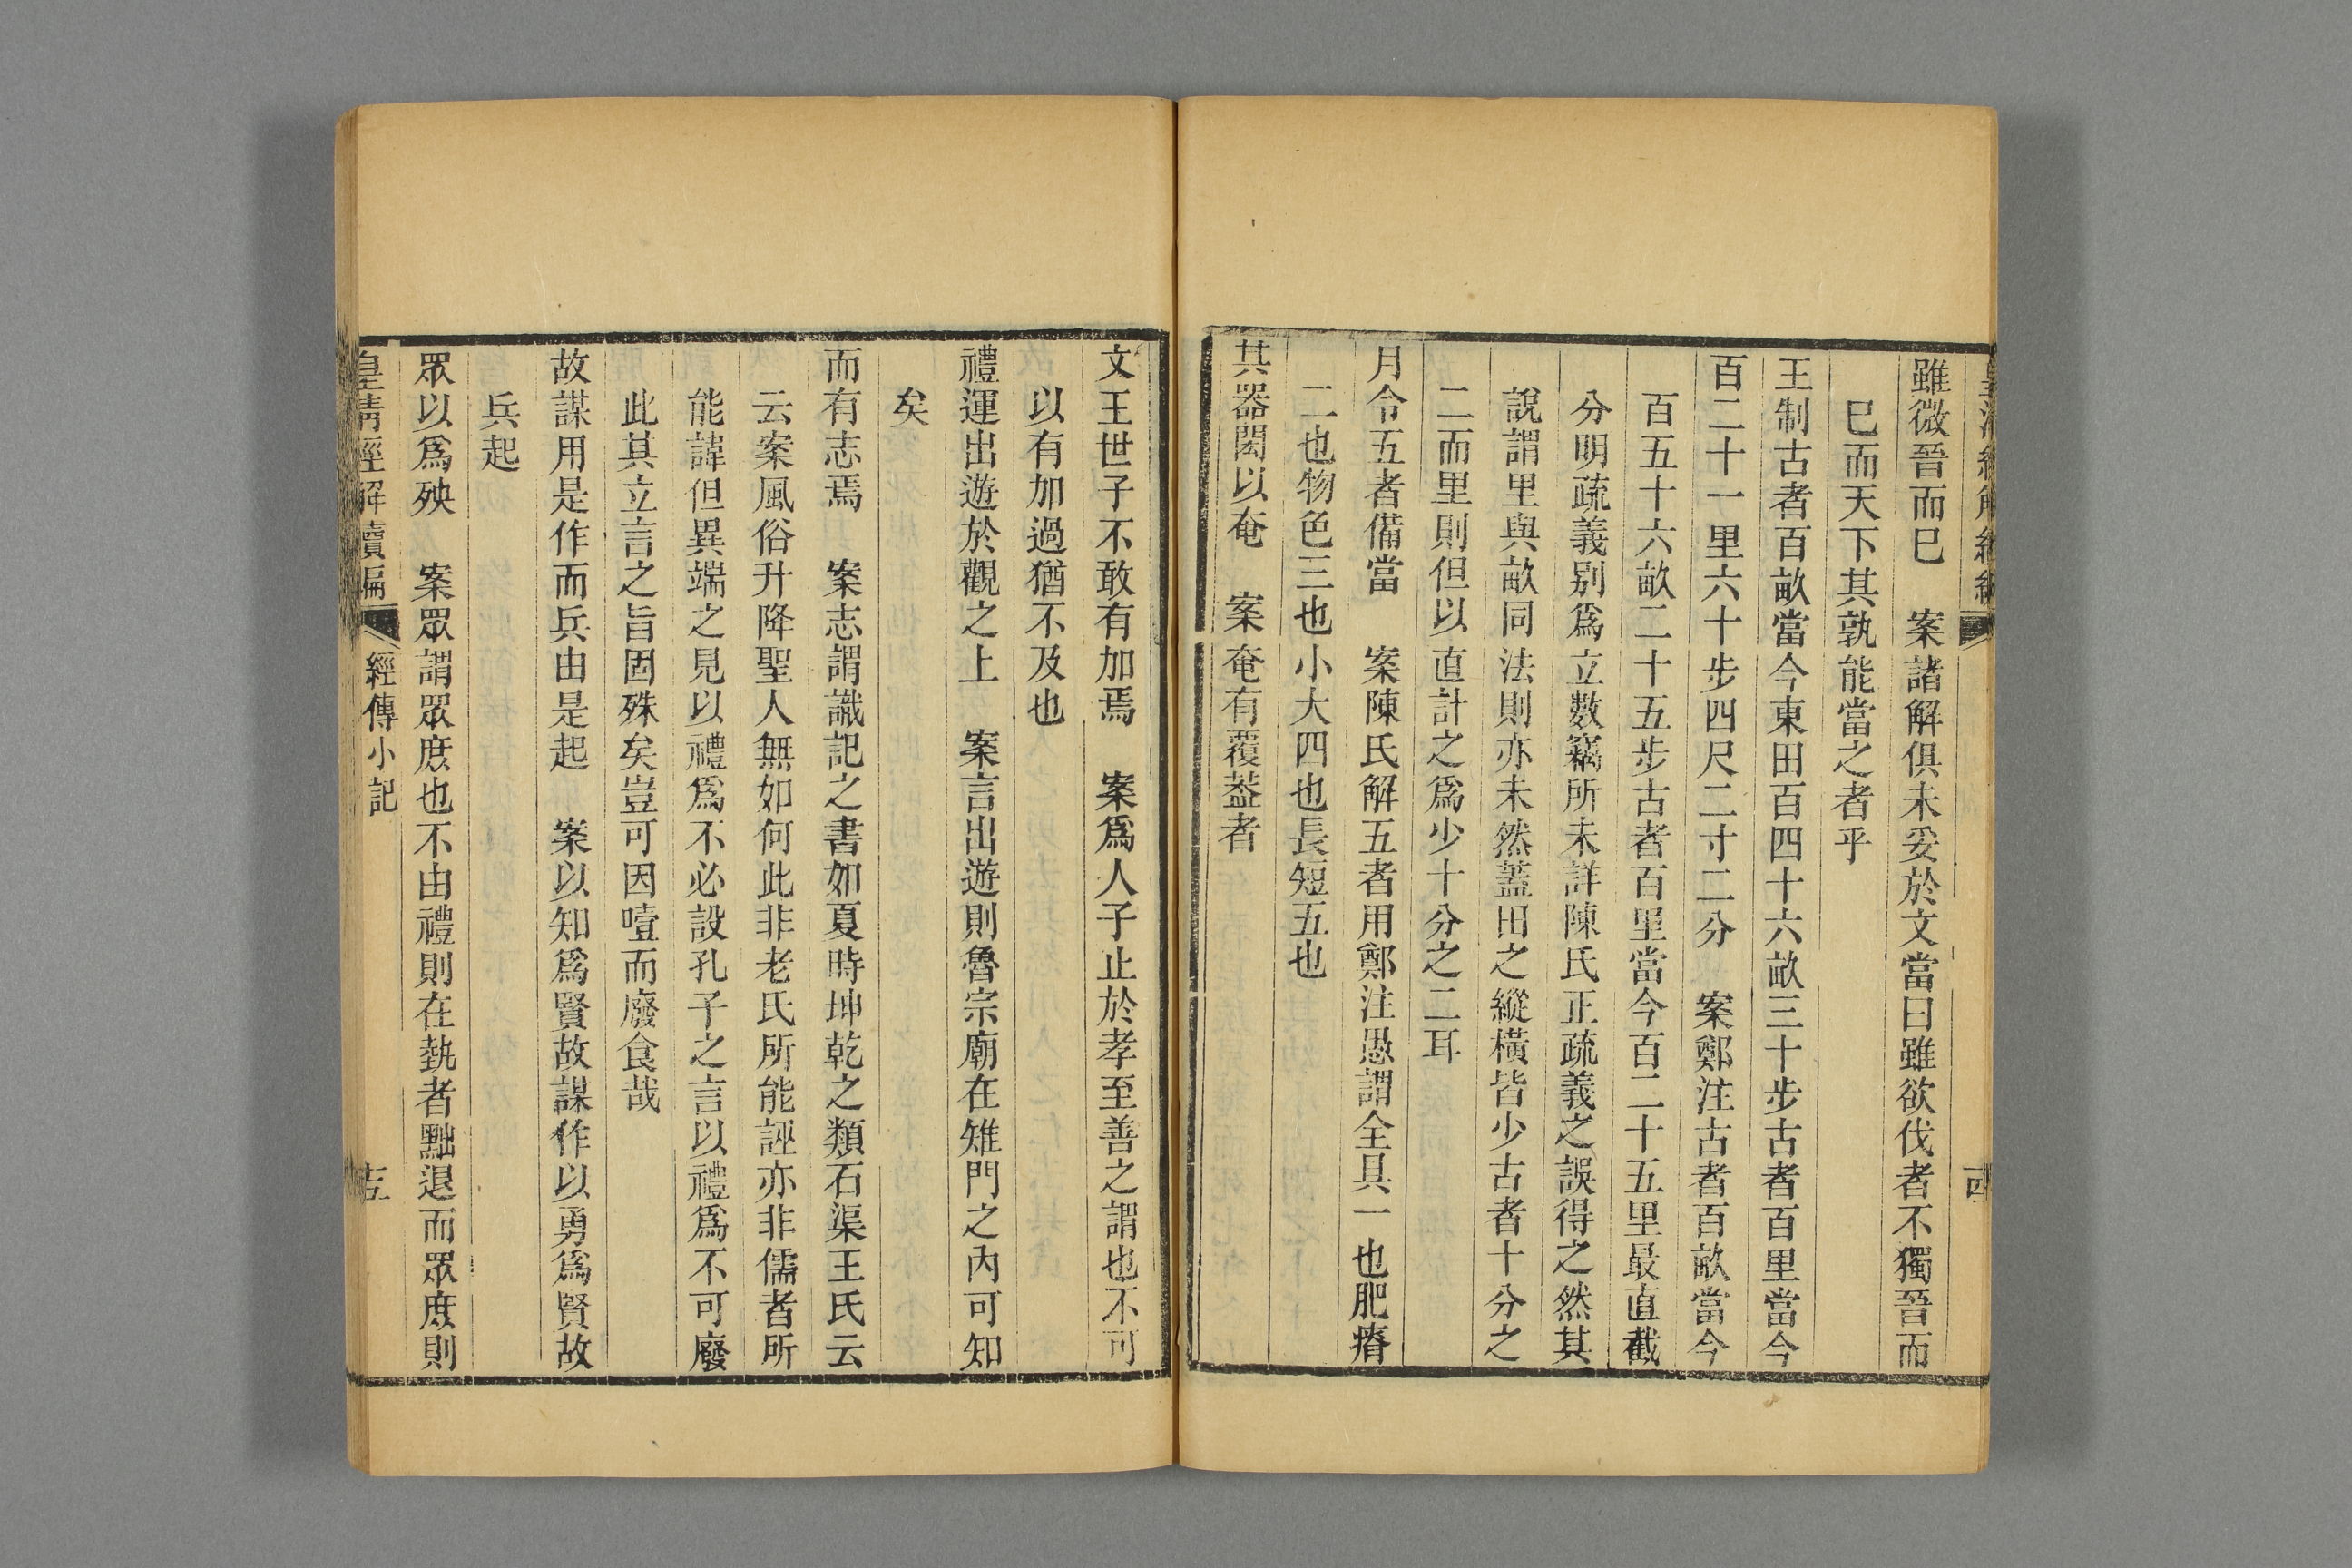 雖微晉而已　案諸解俱未妥於文當曰雖欲伐者不獨晉而
已而天下其孰能當之者乎
王制古者百畝當今東田百四十六畝三十步古者百里當今
百二十一里六十步四尺二寸二分　案鄭注古者百畝當今
百五十六畝二十五步古者百里當今百二十五里最直截
分明疏義別爲立數竊所未詳陳氏正疏義之誤得之然其
說謂里與畝同法則亦未然蓋田之縱橫皆少古者十分之
二而里則但以直計之爲少十分之二耳
月令五者備當　案陳氏解五者用鄭注愚謂全具一也肥瘠
二也物色三也小大四也長短五也
其器閎以奄　案奄有覆葢者
文王世子不敢有加焉　案爲人子止於孝至善之謂也不可
以有加過猶不及也
禮運出遊於觀之上　案言出遊則魯宗廟在雉門之內可知
矣
而有志焉　案志謂識記之書如夏時坤乾之類石渠王氏云
云案風俗升降聖人無如何此非老氏所能誣亦非儒者所
能諱但異端之見以禮爲不必設孔子之言以禮爲不可廢
此其立言之旨固殊矣豈可因噎而廢食哉
故謀用是作而兵由是起　案以知爲賢故謀作以勇爲賢故
兵起
眾以爲殃　案眾謂眾庶也不由禮則在埶者黜退而眾庶則
皇清經解續編
經傳小記